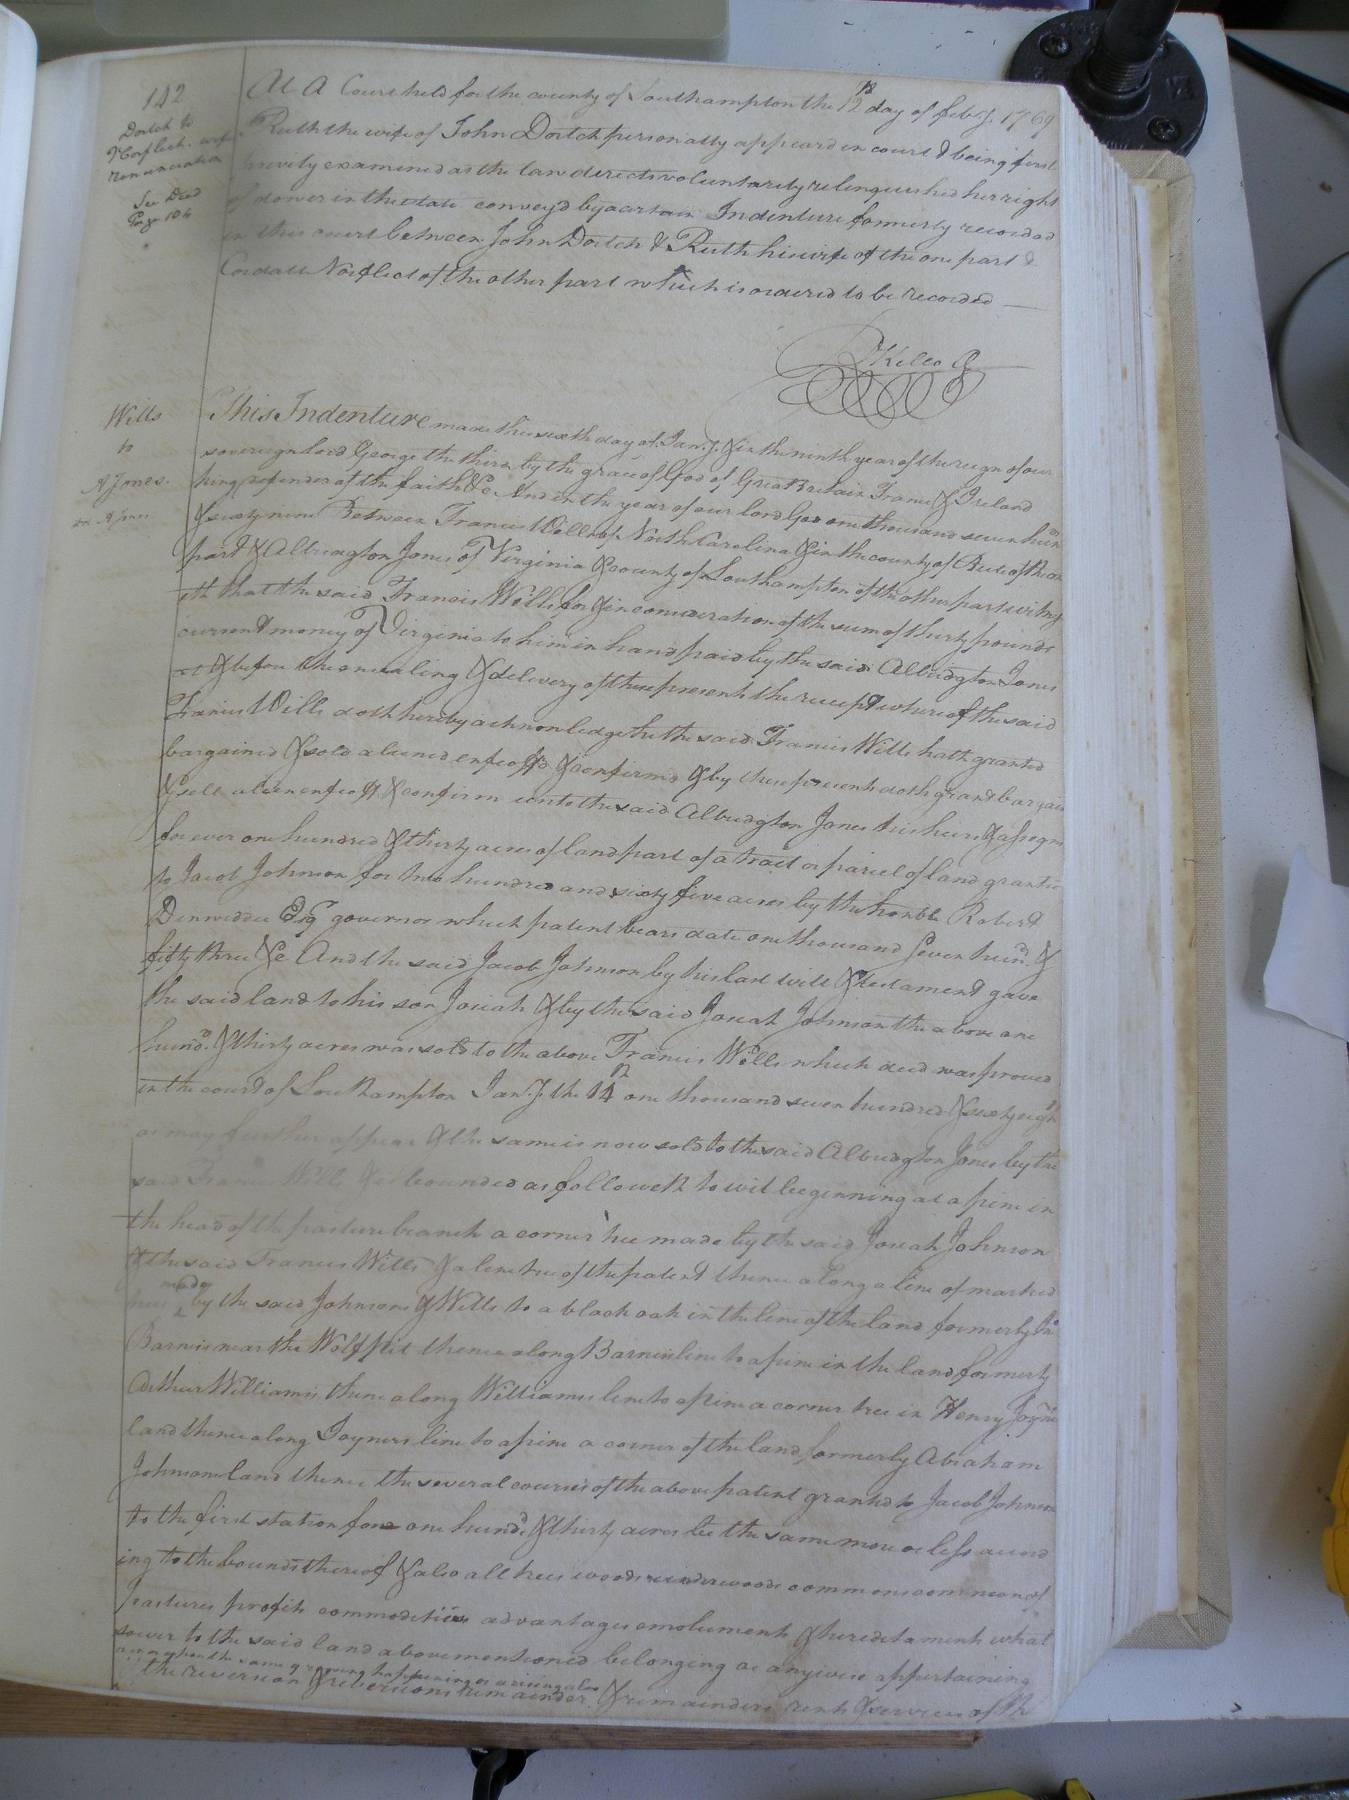 142
Dortch to
Norflect. wife
renunciation
See Deed
Page 104
At A Court held for the county of Southampton the 12th day of feby. 1769
Ruth the wife of John Dortch personally appeard in court & being first
privily examined as the law directs voluntarily relinquished her right
of dower in the estate convey'd by a certain Indenture formerly recorded
in this court between John Dortch & Ruth his wife of the one part &
Cordall Norflect of the other part which is ordered to be recorded
Kello
Wills
to
A Jones.
This Indenture made this sixth day of Jan.y. & in the ninth year of the reign of our
sovereign lord George the third by the grace of God of Great Britain France & Ireland
king defender of the faith &c And in the year of our lord God one thousand seven hund
& sixty nine Between Francis Wills of North Carolina & in the county of Bute of the one
part & Albridgton Jones of Virginia & county of Southampton of the other part witness
eth that the said Francis Wills for & in consideration of the sum of thirty pounds
current money of Virginia to him in hand paid by the said Albridgton Jones
at & before the ensealing & delivery of these presents the receipt whereof the said
Francis Wills doth hereby acknowledge he the said Francis Wills hath granted
bargained & sold aliened enfeoff'd & confirm'd & by these presents doth grant bargain
& sell alien enfeoff & confirm unto the said Albridgton Jones his heirs & assigns
for ever one hundred & thirty acres of land part of a tract or parcel of land granted
to Jacob Johnson for two hundred and sixty five acres by the honble Robert
Dinwiddie Esqr governor which patent bears date one thousand seven hund &
fifty three &c And the said Jacob Johnson by his last will & testament gave
the said land to his son Josiah & by the said Josiah Johnson the above one
hund. & thirty acres was sold to the above Francis Wills which deed was proved
in the court of Southampton Jan.y. the 14th one thousand seven hundred & sixty eight
as may further appear & the same is now sold to the said Albridgton Jones by the
said Francis Wills & is bounded as followeth to wit beginning at a pine in
the head of the pasture branch a corner tree made by the said Josiah Johnson
& the said Francis Wills & a line tree of the patent thence along a line of marked
trees made by the said Johnson & Wills to a black oak in the line of the land formerly Jn
Barnes near the Wolf Pit thence along Barnes line to a pine in the land formerly
Arthur Williams's thence along Williams line to a pine a corner tree in Henry Joyners
land thence along Joyners line to a pine a corner of the land formerly Abraham
Johnsons land thence the several courses of the above patent granted to Jacob Johnson
to the first station for one hund. & thirty acres be the same more or less accord
ing to the bounds thereof & also all trees woods underwoods commons common of
pastures profits commodities advantages emoluments & hereditaments what
soever to the said land above mentioned belonging or anywise appertaining
upon the same growing happening or arising also
the reversion & reversions remainder & remainders rents & services of the